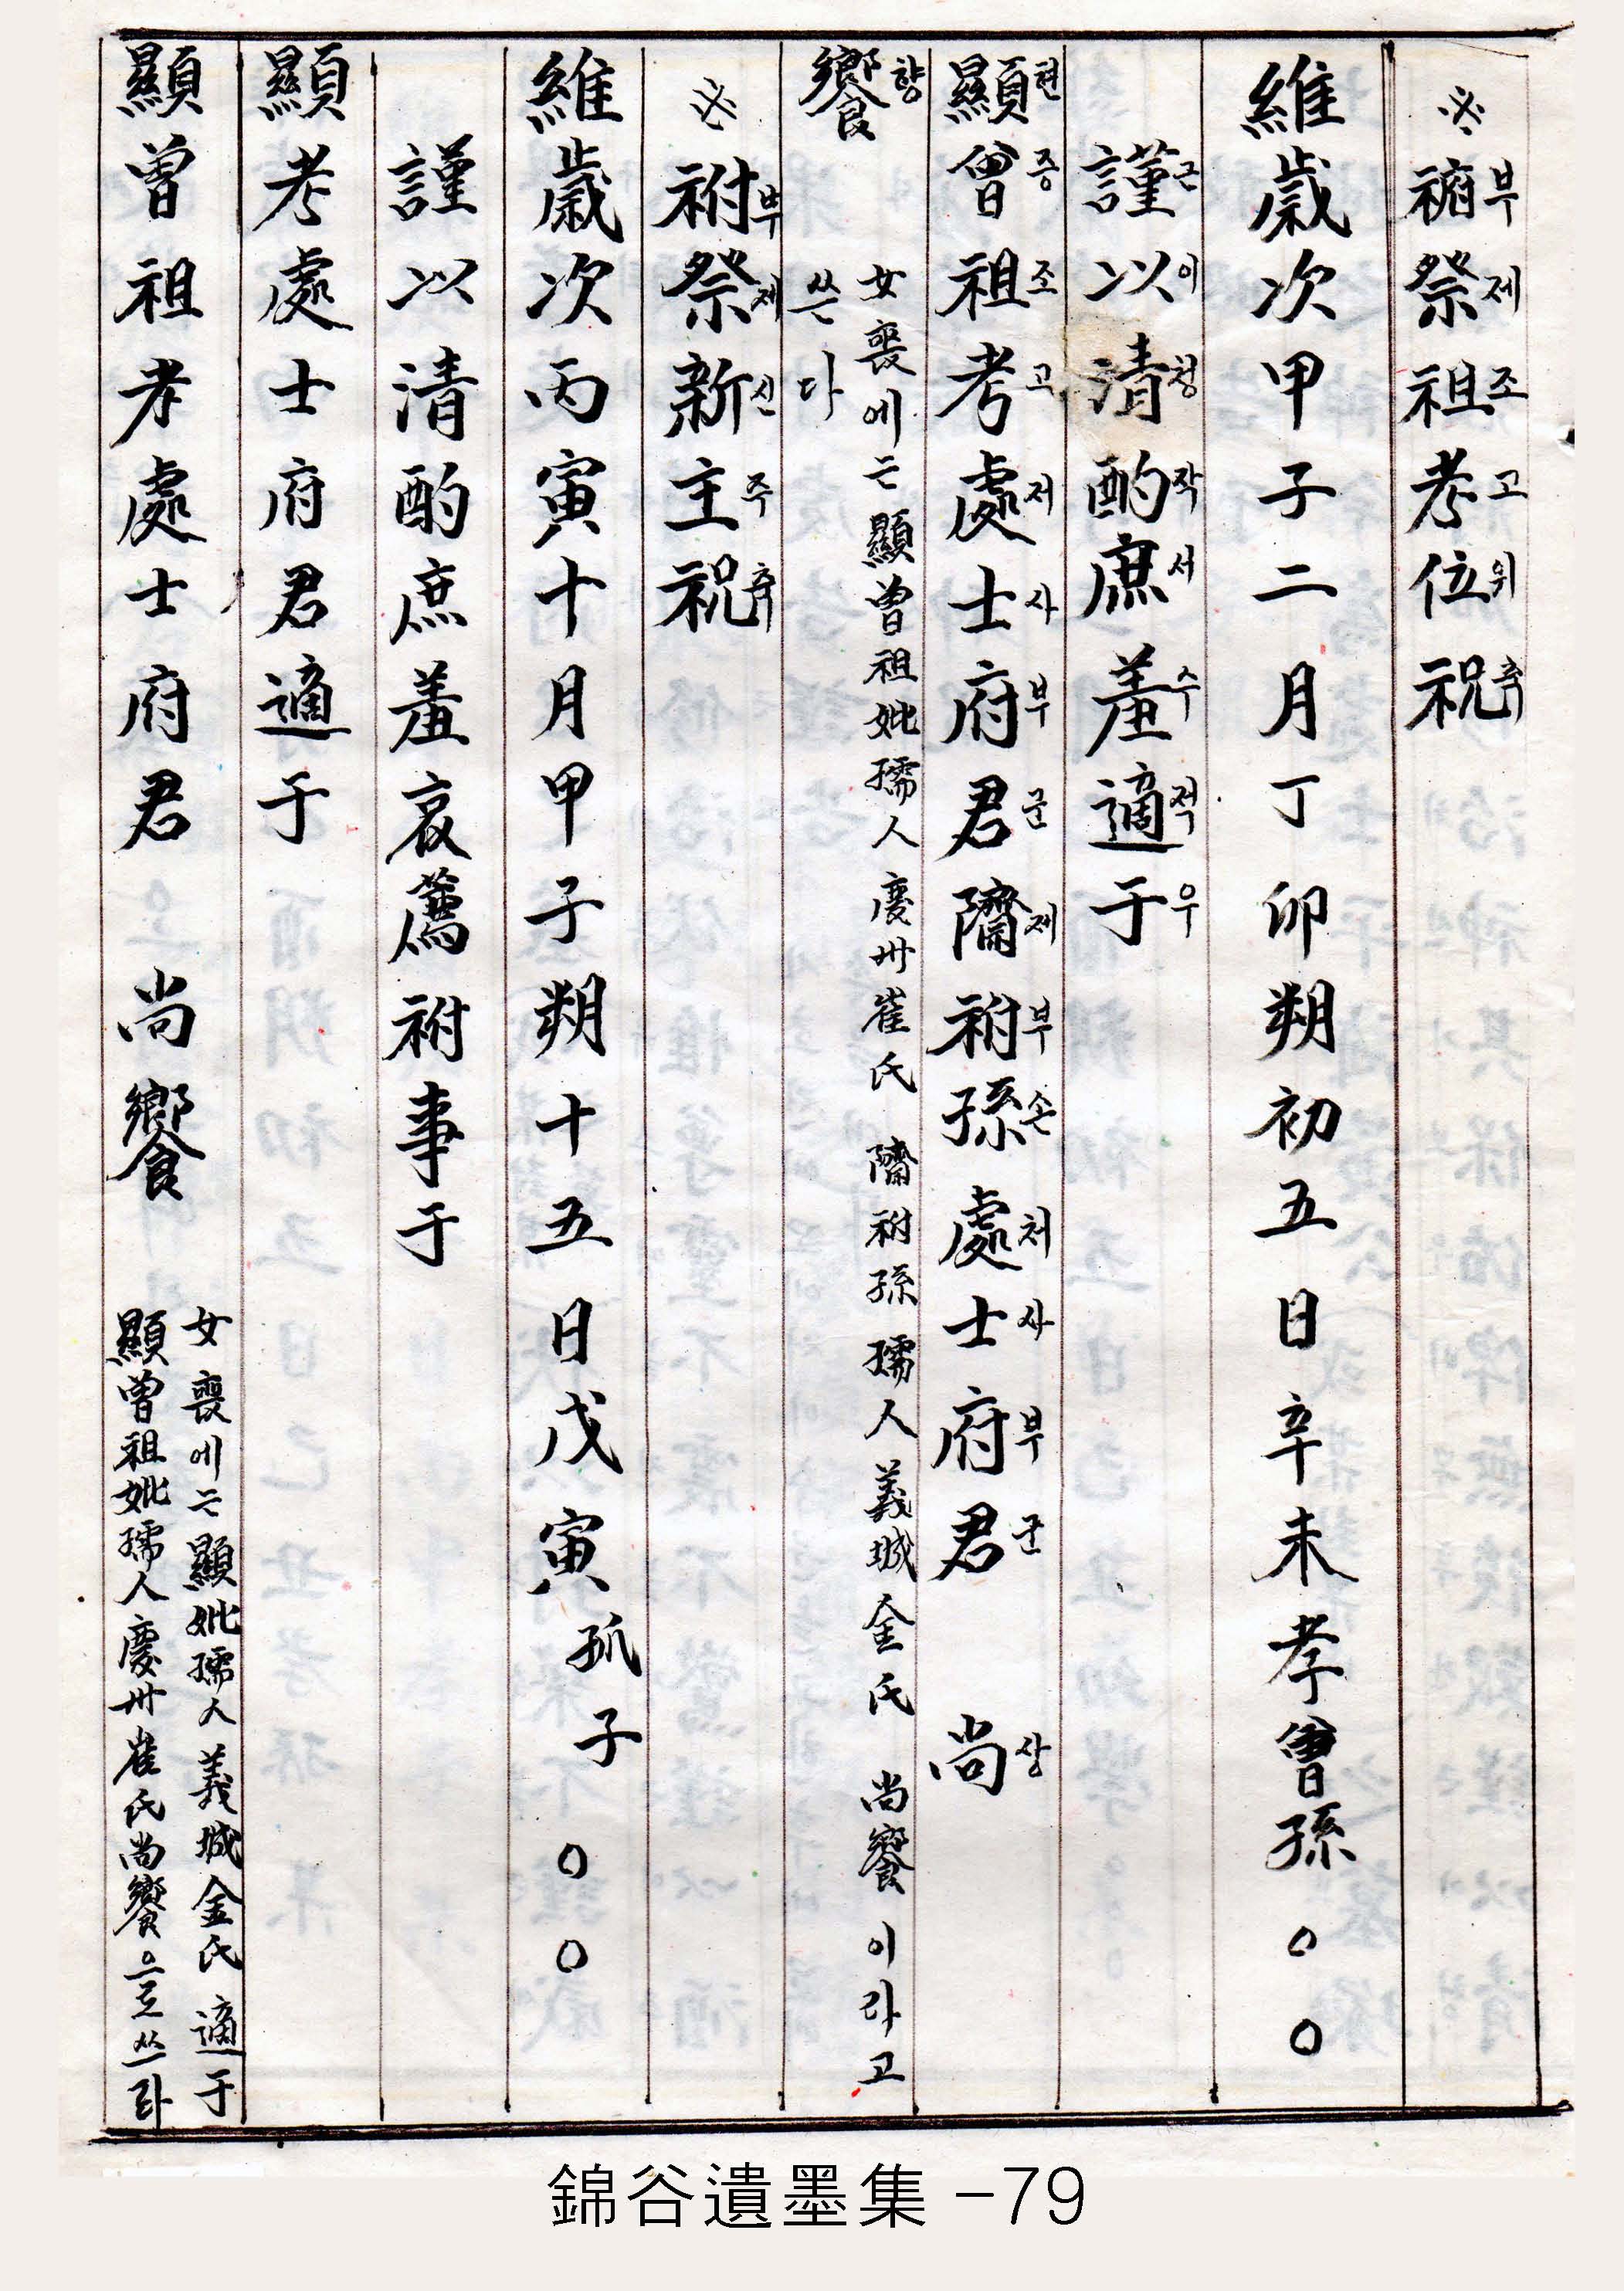 ※祔부祭제祖조考고位위祝축
維歲次甲子二月丁卯朔初五日辛未孝曾孫○○
謹근以이清청酌작庶서羞수適적于우
顯현曾증祖조考고處저士사府부君군隮제祔부孫손處처士사府부君군 尚상
饗향
女喪에는 顯曾祖妣孺人慶州崔氏 隮祔孫孺人義城金氏 尚饗이라고
쓴다
※祔부祭제新신主주祝축
維歲次丙寅十月甲子朔十五日戊寅孤子○○
謹以清酌庶羞哀薦祔事于
顯考處士府君適于
顯曾祖考處士府君 尚饗
女喪에는 顯妣孺人義城金氏適于
顯曾祖妣孺人慶州崔氏尚饗으로쓰라
錦谷遺墨集 -79